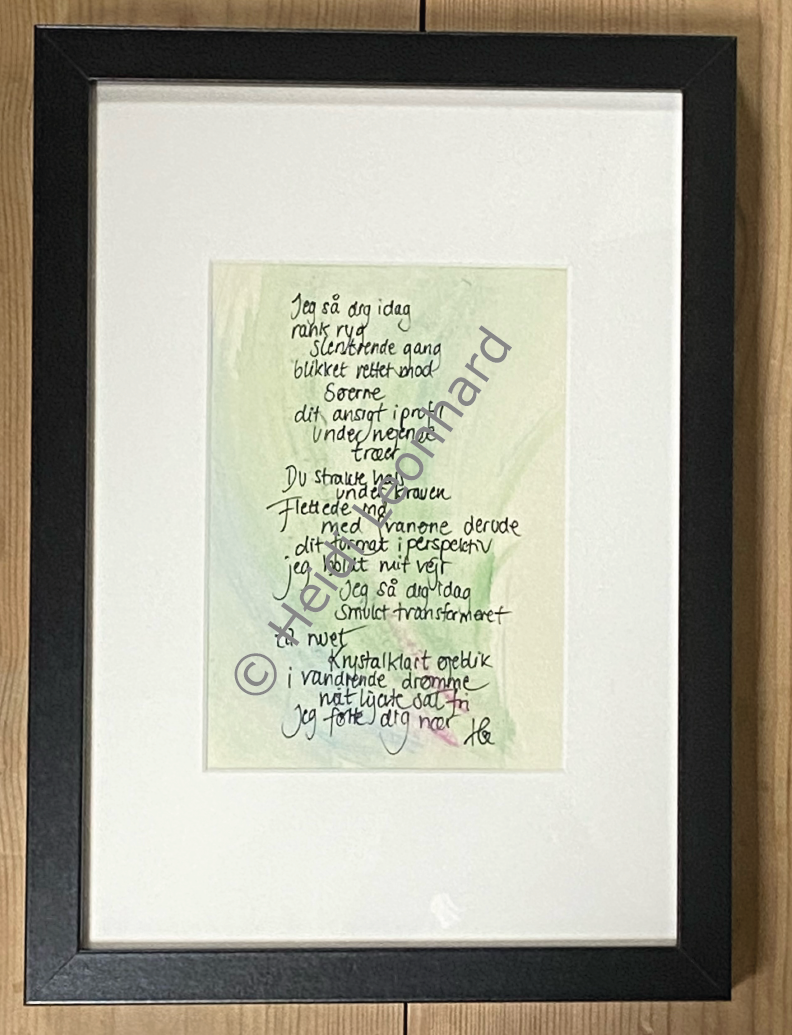 Jeg så dig idag
rank ryg
slentrende gang
blikket rettet mod
Søerne
dit ansigt i profil
under nejende
træer
Du strakte hals
under kraven
Flettede
med svanerne derude
dit format i perspektiv
jeg holdt mit vejr
Jeg så dig idag
smukt transformeret
til nuet
Krystalklart øjeblik
i vandrende drømme
mit hjerte sat fri
Jeg følte dig nær
© Heidi Leonhard